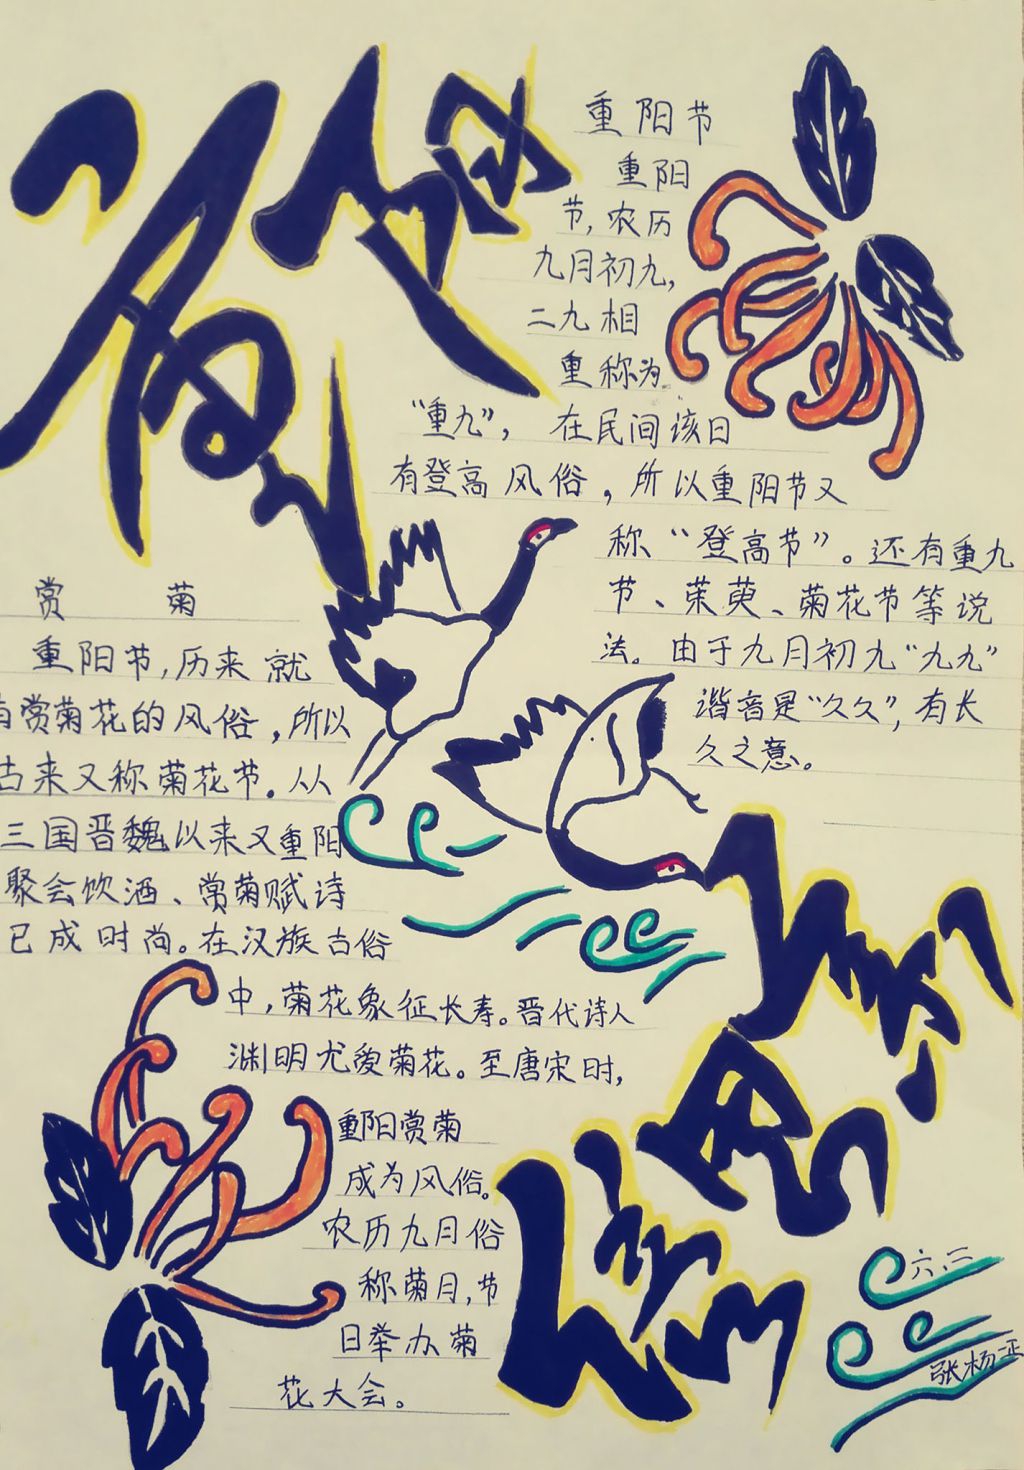 重阳
重阳节
重阳
节,农历
九月初九,
二九相
重称为
“重九”, 在民间该日
有登高风俗,所以重阳节又
称“登高节”。还有重九
节、茱萸、菊花节等说
法。由于九月初九“九九”
谐音是“久久”,有长
久之意。
赏 菊
重阳节,历来就
有赏菊花的风俗,所以
古来又称菊花节。从
三国晋魏以来又重阳
聚会饮酒、赏菊赋诗
已成时尚。在汉族古俗
中,菊花象征长寿。晋代诗人
渊明尤爱菊花。至唐宋时,
重阳赏菊
成为风俗。
农历九月俗
称菊月,节
日举办菊
花大会。
六、二
张杨